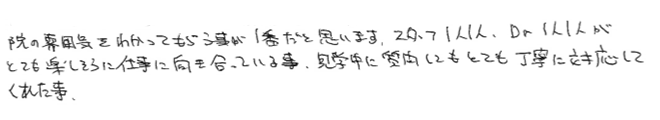 院の雰囲気をわかってもらう事が1番だと思います。スタッフ1人1人、Dr 1人1人が
とても楽しそうに仕事に向き合っている事、見学中に質問してもとても丁寧に対応して
くれた事、